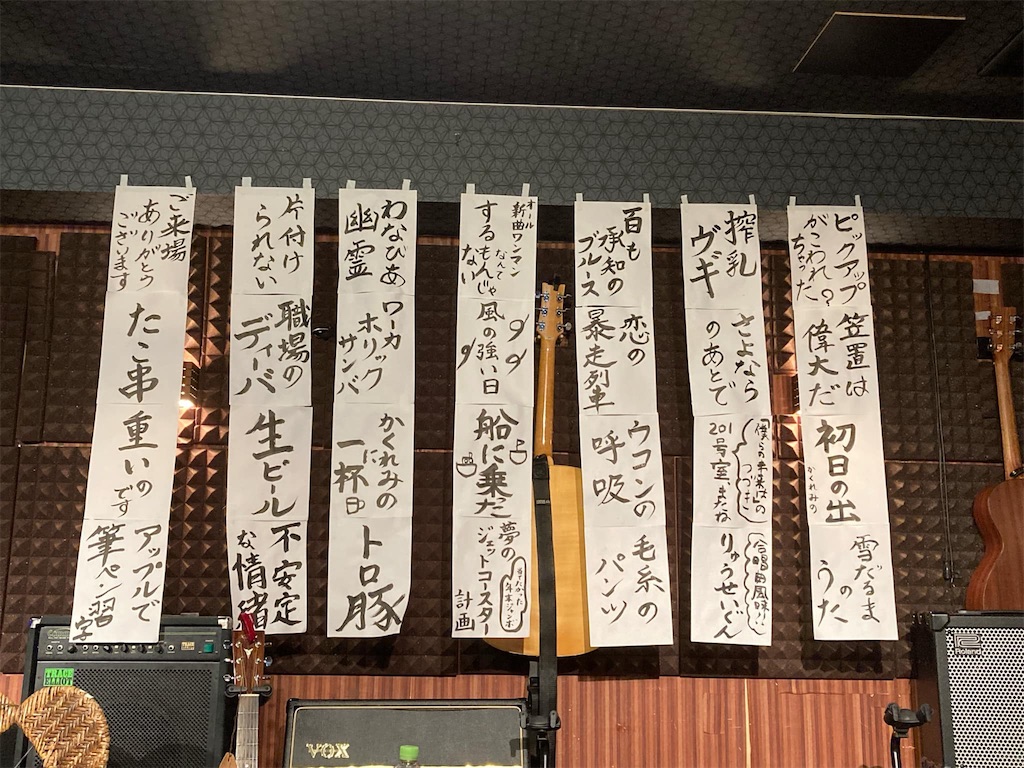 ピックアップ
がこわれ?
ちゃった
笠置は
偉大だ
初日の出
かくれみの
雪だるま
のうた
搾乳
ヴギ
さよなら
のあとで
「僕らの未来は」の
つづき
201号室またね
合唱曲風味!!
りゅうせいぐん
百も
承知の
ブルース
恋の
暴走列車
ウコンの
呼吸
毛糸の
パンツ
オール
新曲ワンマン
なんて
するもんじゃ
ない
風の強い日
船に乗った
夢の
ジェットコースター
計画
当てたかった
年末ジャンボ
わなびあ
幽霊
ワーカ
ホリック
サンバ
かくれみの
に
一杯
トロ豚
片付け
られない
職場の
ディーバ
生ビール
不安定
な情緒
ご来場
ありがとう
ございます
たこ串
重いのです
アップルで
筆ペン習字
TRACE
ELLIOT
VOX
Roland